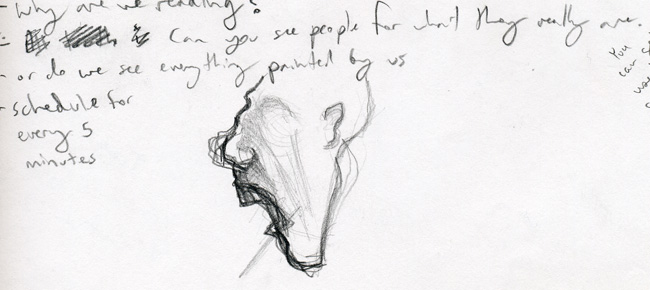 - why are we reading?
- Can you see people for what they really are.
- or do we see everything painted by us
- schedule for
every 5
minutes
You
can